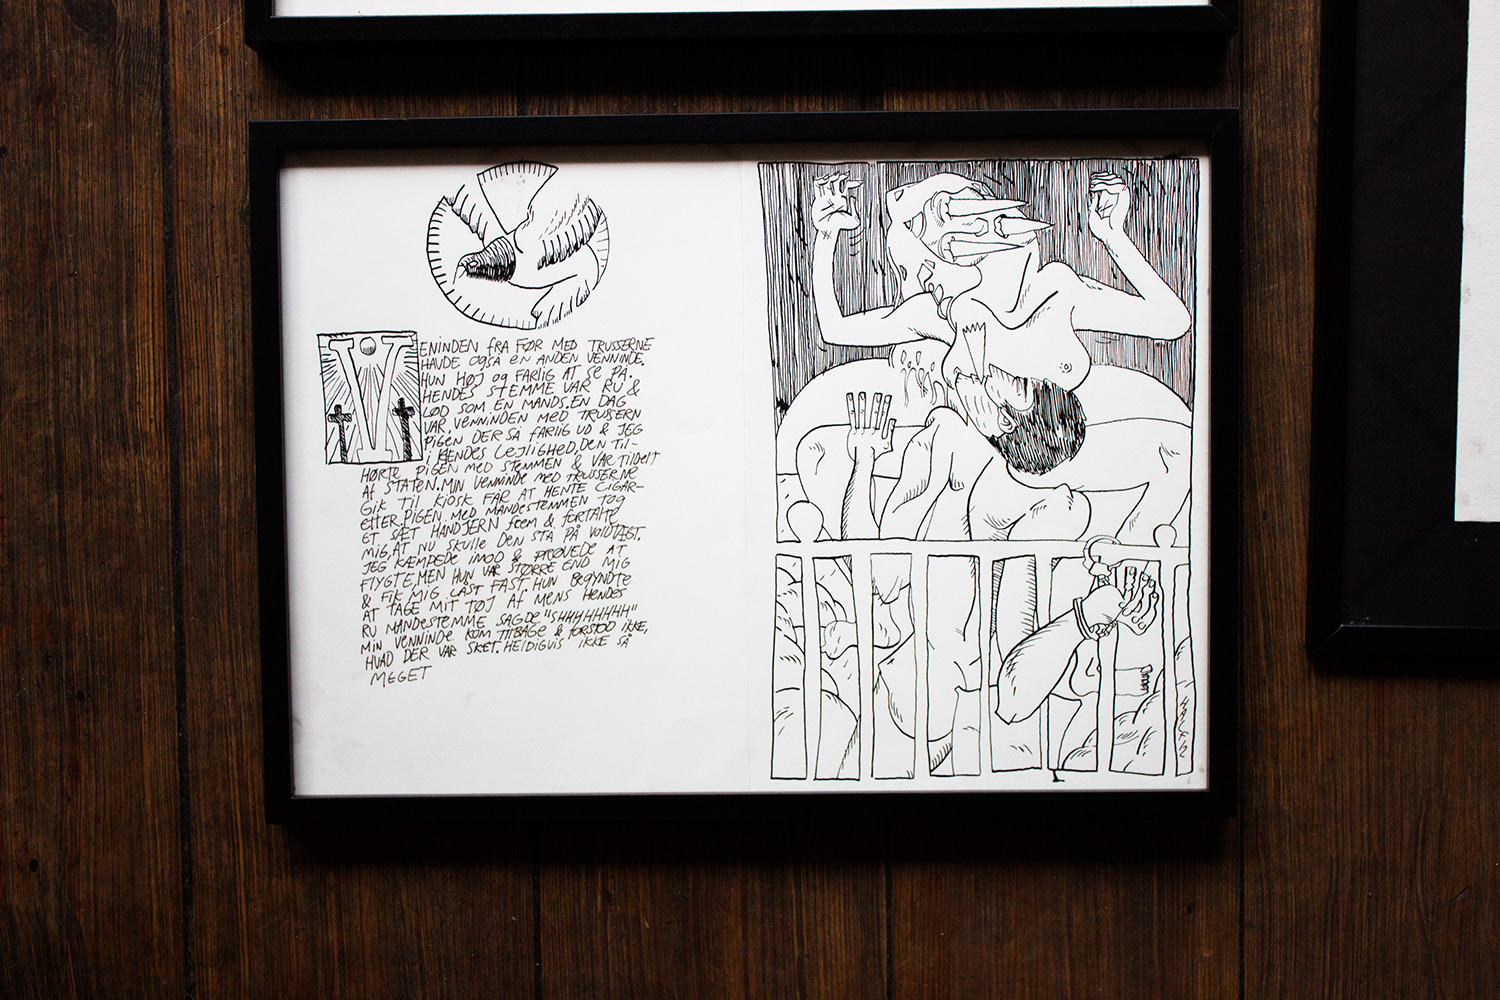 VENINDEN FRA FØR MED TRUSSERNE
HAVDE OGSÅ EN ANDEN VENNINDE.
HUN HØJ OG FARLIG AT SE PÅ.
HENDES STEMME VAR RU &
LØD SOM EN MANDS. EN DAG
VAR VENNINDEN MED TRUSSERN
PIGEN DER SÅ FARLIG UD & JEG
I HENDES LEJLIGHED, DEN TIL-
HØRTE PIGEN MED STEMMEN & VAR TILDELT
AF STATEN. MIN VENNINDE MED TRUSSERNE
GIK TIL KIOSK FAR AT HENTE CIGAR-
ETTER. PIGEN MED MANDESTEMMEN TOG
ET SÆT HANDJERN FREM & FORTALTE
MIG, AT NU SKULLE DEN STÅ PÅ VOLDTÆGT.
JEG KÆMPEDE IMOD & PRØVEDE AT
FLYGTE, MEN HUN VAR STØRRE END MIG
& FIK MIG LÅST FAST. HUN BEGYNDTE
AT TAGE MIT TØJ AF MENS HENDES
RU MANDESTEMME SAGDE "SHHHHHHHH"
MIN VENNINDE KOM TILBAGE & FORSTOD IKKE,
HVAD DER VAR SKET. HELDIGVIS IKKE SÅ
MEGET